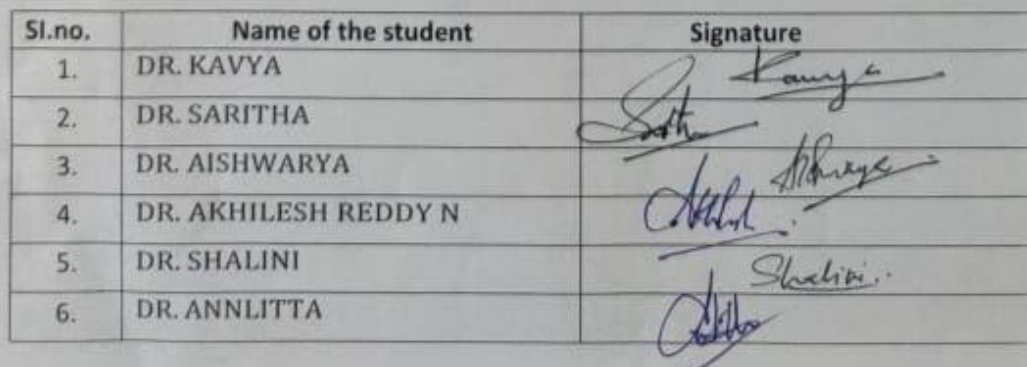 Sl.no. Name of the student Signature
1. DR. KAVYA Kavya
2. DR. SARITHA
3. DR. AISHWARYA
4. DR. AKHILESH REDDY N
5. DR. SHALINI Shalini
6. DR. ANNLITTA